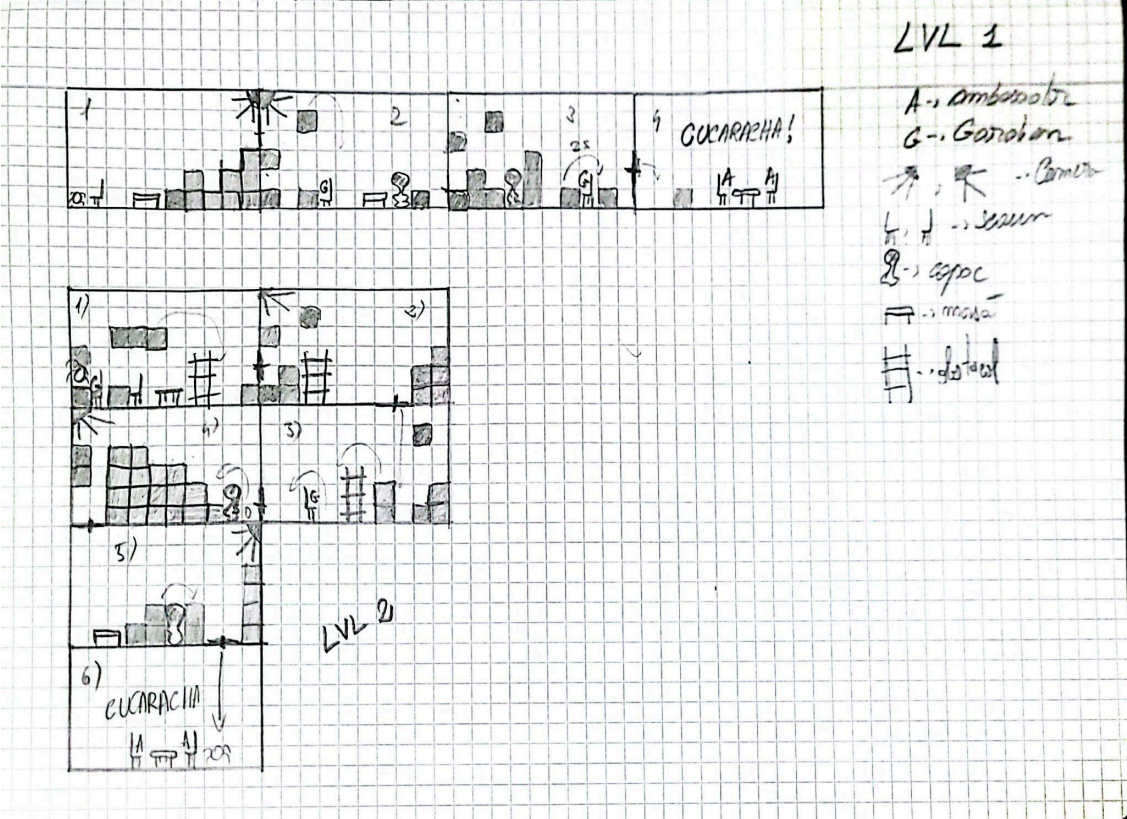 LVL 1
A → ambasador
G → Gardian
→ Camera
→ scaun
→ copac
→ masă
→
1
2
3
2s
4
CUCARACHA!
G
G
A A
1)
2)
G
4)
3)
G
5)
LVL 2
6)
CUCARACHA
A A